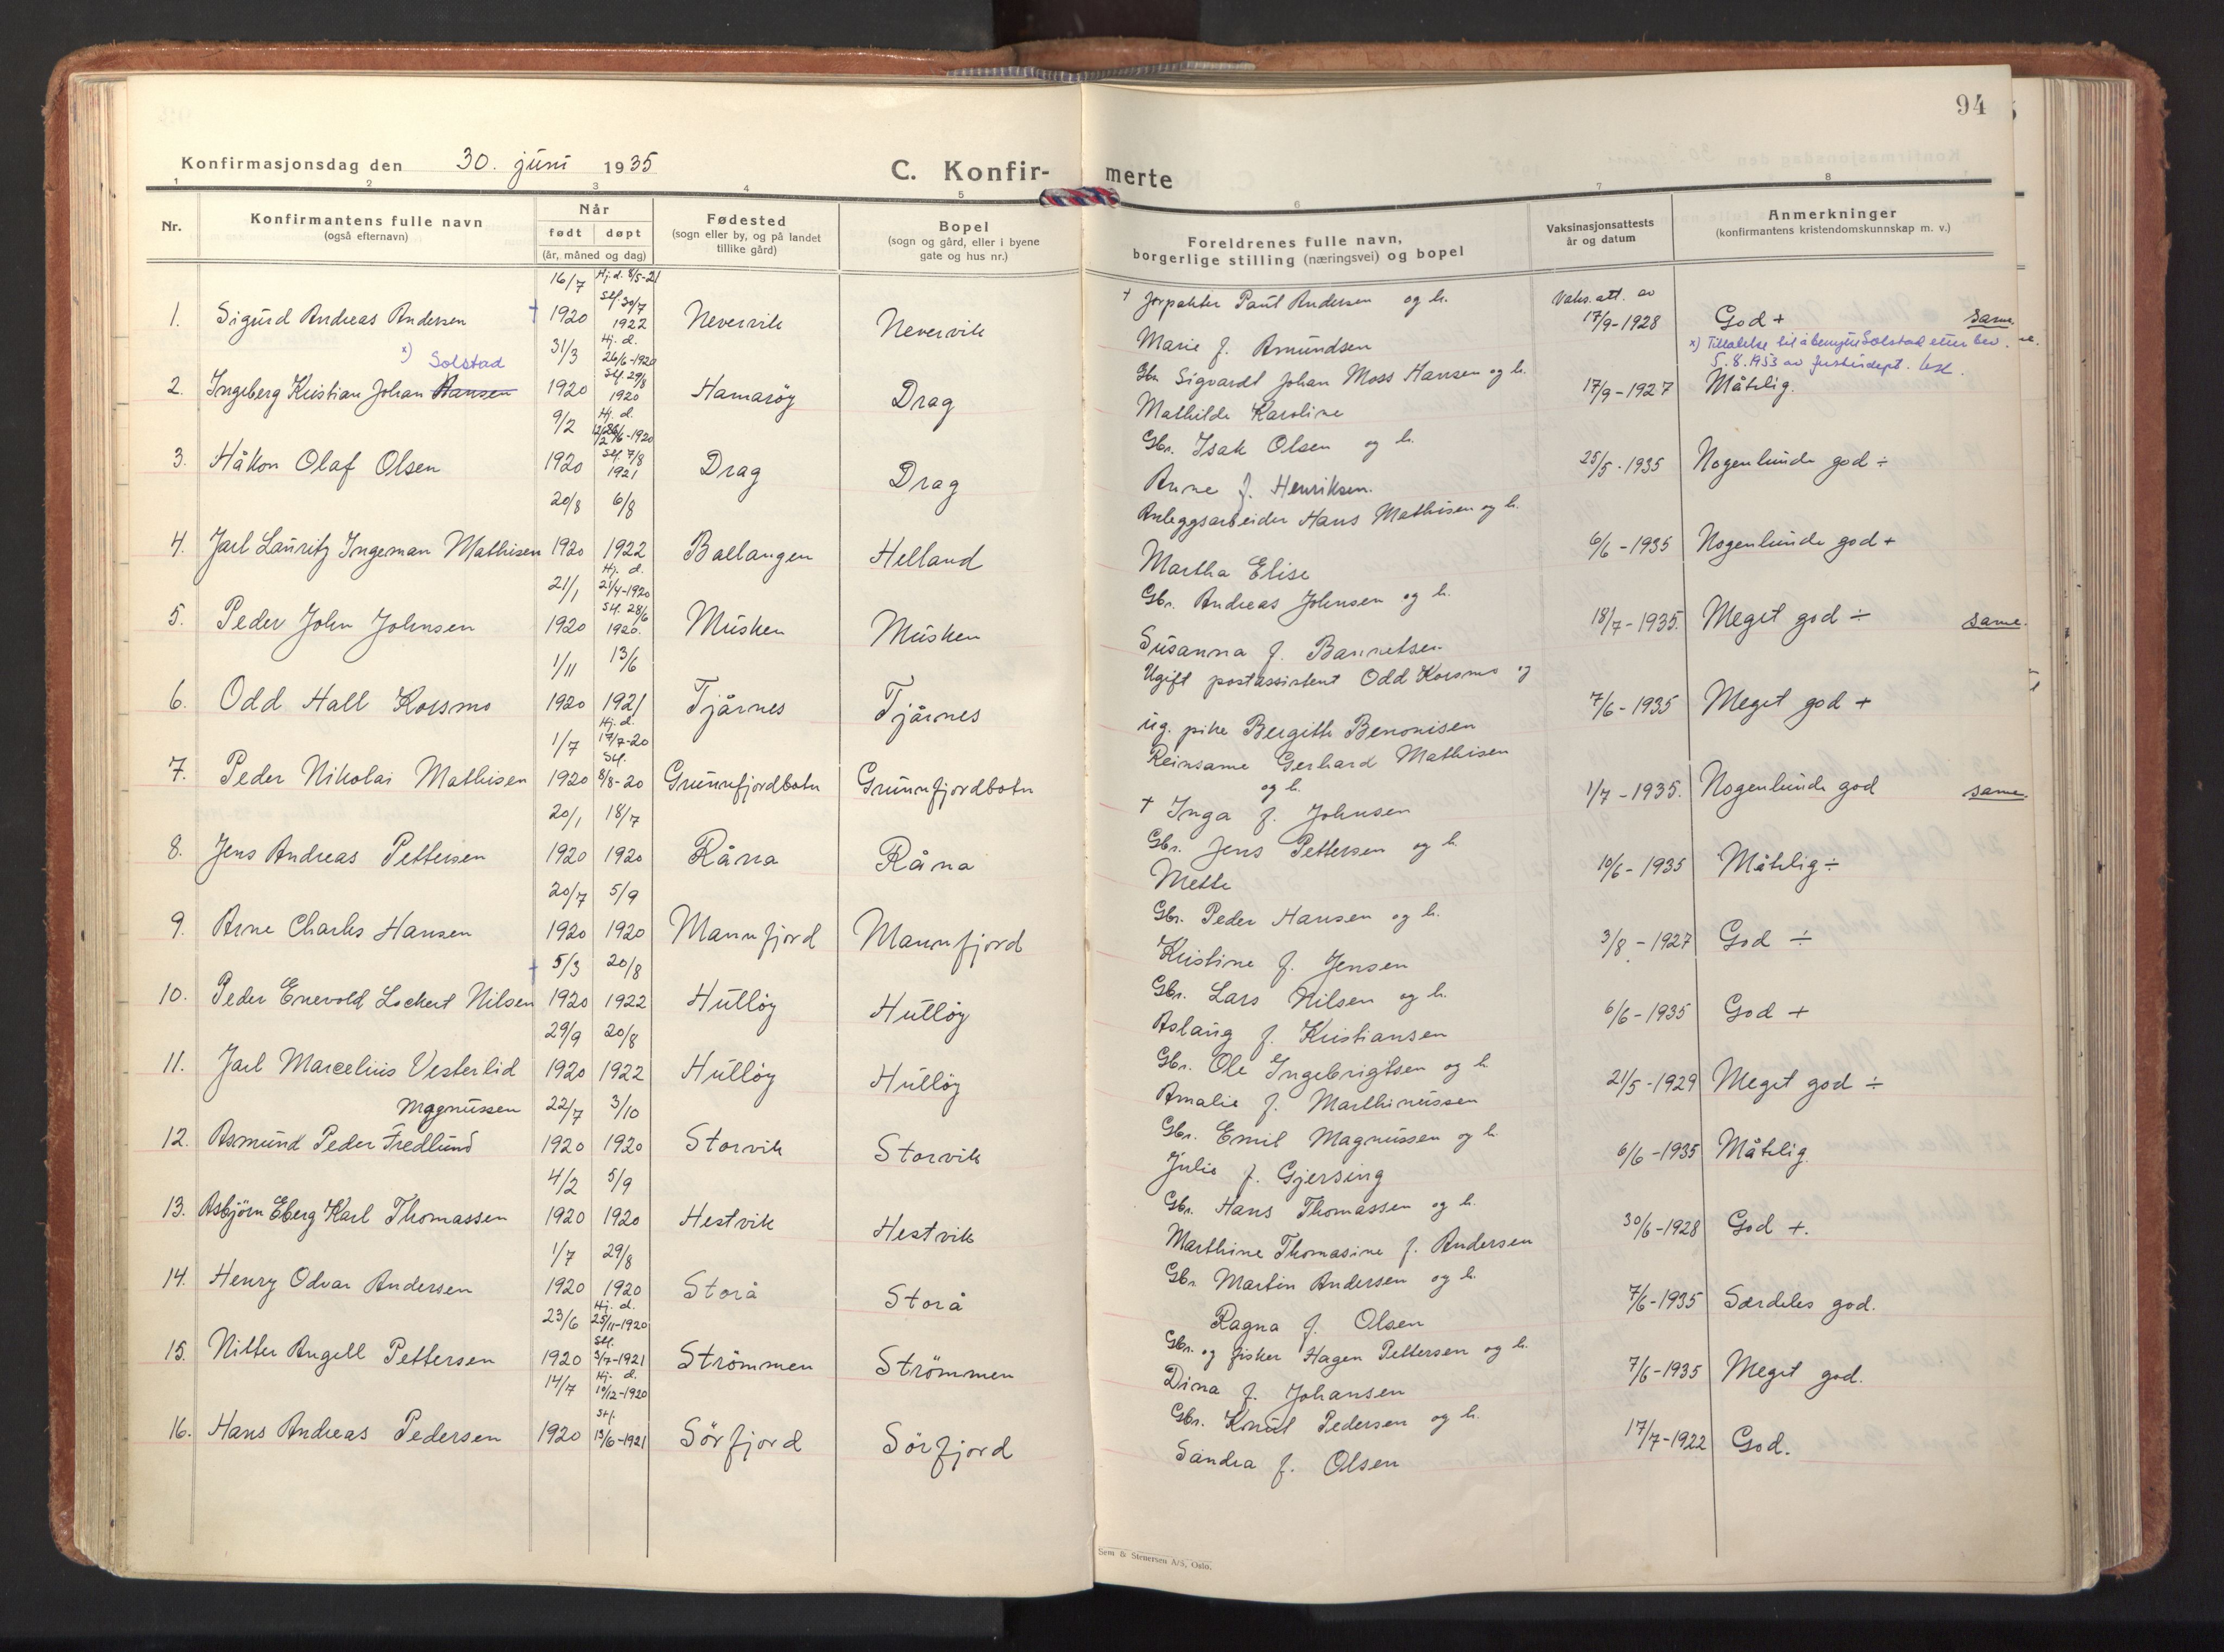 94
Konfirmasjonsdag den 30. juni 1935
C. Konfir-
merte
1 2 3 4 5 6 7 8
Nr.
Konfirmantens fulle navn
(også efternavn)
Når
født døpt
(år, måned og dag)
Fødested
(sogn eller by, og på landet
tillike gård)
Bopel
(sogn og gård, eller i byene
gate og hus nr.)
Foreldrenes fulle navn,
borgerlige stilling (næringsvei) og bopel
Vaksinasjonsattests
år og datum
Anmerkninger
(konfirmantens kristendomskunnskap m. v.)
16/7 Hj. d. 8/5-21
Stf. 30/7
† Jorpakter Paul Andersen og h. Vaks. att. av
1. Sigurd Andreas Andersen † 1920 1922 Nevervik Nevervik 17/9-1928 God + same.
Marie f. Amundsen
x) Solstad 31/3 Hj. d. 26/6-1920 x) Tillatelse til å benytte Solstad etter bev.
Stf. 29/8 5.8.1953 av Justisdept.
Gbr. Sigvardt Johan Moss Hansen og h.
2. Ingeberg Kristian Johan Hansen 1920 1920 Hamarøy Drag 17/9-1927 Måtelig.
Mathilde Karoline
9/2 Hj. d. 26/6-1920
Gbr. Isak Olsen og h.
3. Håkon Olaf Olsen 1920 Stf. 7/8 1921 Drag Drag 25/5-1935 Nogenlunde god ÷
Anne f. Henriksen.
20/8 6/8 Anleggsarbeider Hans Mathisen og h.
4. Jarl Lauritz Ingeman Mathisen 1920 1922 Ballangen Helland 6/6-1935 Nogenlunde god +
Martha Elise
21/1 Hj. d. 21/4-1920 Gbr. Andreas Johnsen og h.
5. Peder John Johnsen 1920 Stf. 28/6 1920. Musken Musken 18/7-1935. Meget god ÷ same.
Susanna f. Barnetsen
1/11 13/6 Ugift postassistent Odd Korsmo og
6. Odd Hall Korsmo 1920 1921 Tjårnes Tjårnes 7/6-1935 Meget god +
ug. pike Bergitte Benonisen
1/7 Hj. d. 17/7-20 Reinsame Gerhard Mathisen
og h.
7. Peder Nikolai Mathisen 1920 Stf. 8/8-20 Grunnfjordbotn Grunnfjordbotn 1/7-1935. Nogenlunde god same.
† Inga f. Johnsen
20/1 18/7 Gbr. Jens Pettersen og h.
8. Jens Andreas Pettersen 1920 1920 Råna Råna 10/6-1935 Måtelig ÷
Mette
20/7 5/9 Gbr. Peder Hansen og h.
9. Arne Charles Hansen 1920 1920 Mannfjord Mannfjord 3/8-1927 God ÷
Kristine f. Jensen
† 5/3 20/8 Gbr. Lars Nilsen og h.
10. Peder Enevold Lockert Nilsen 1920 1922 Hulløy Hulløy 6/6-1935 God +
Aslaug f. Kristiansen
29/9 20/8 Gbr. Ole Ingebrigtsen og h.
11. Jarl Marcelius Vesterlid 1920 1922 Hulløy Hulløy 21/5-1929 Meget god ÷
Amalie f. Marthinussen
Magnussen 22/7 3/10 Gbr. Emil Magnussen og h.
12. Asmund Peder Fredlund 1920 1920 Storvik Storvik 6/6-1935 Måtelig
Julie f. Gjersing
4/2 5/9 Gbr. Hans Thomassen og h.
13. Asbjörn Eberg Karl Thomassen 1920 1920 Hestvik Hestvik 30/6-1928 God +.
Marthine Thomasine f. Andersen
1/7 29/8 Gbr. Martin Andersen og h.
14. Henry Odvar Andersen 1920 1920 Storå Storå 7/6-1935 Særdeles god.
Ragna f. Olsen
23/6 Hj. d. 25/11-1920 Gbr. og fisker Hagen Pettersen og h.
15. Nilter Angell Pettersen 1920 Stf. 3/7-1921 Strömmen Strömmen 7/6-1935 Meget god.
Dina f. Johansen
14/7 Hj. d. 10/12-1920 Gbr. Knut Pedersen og h.
16. Hans Andreas Pedersen 1920 Stf. 13/6-1921 Sörfjord Sörfjord 17/7-1922 God.
Sandra f. Olsen
Sem & Stenersen A/S, Oslo.